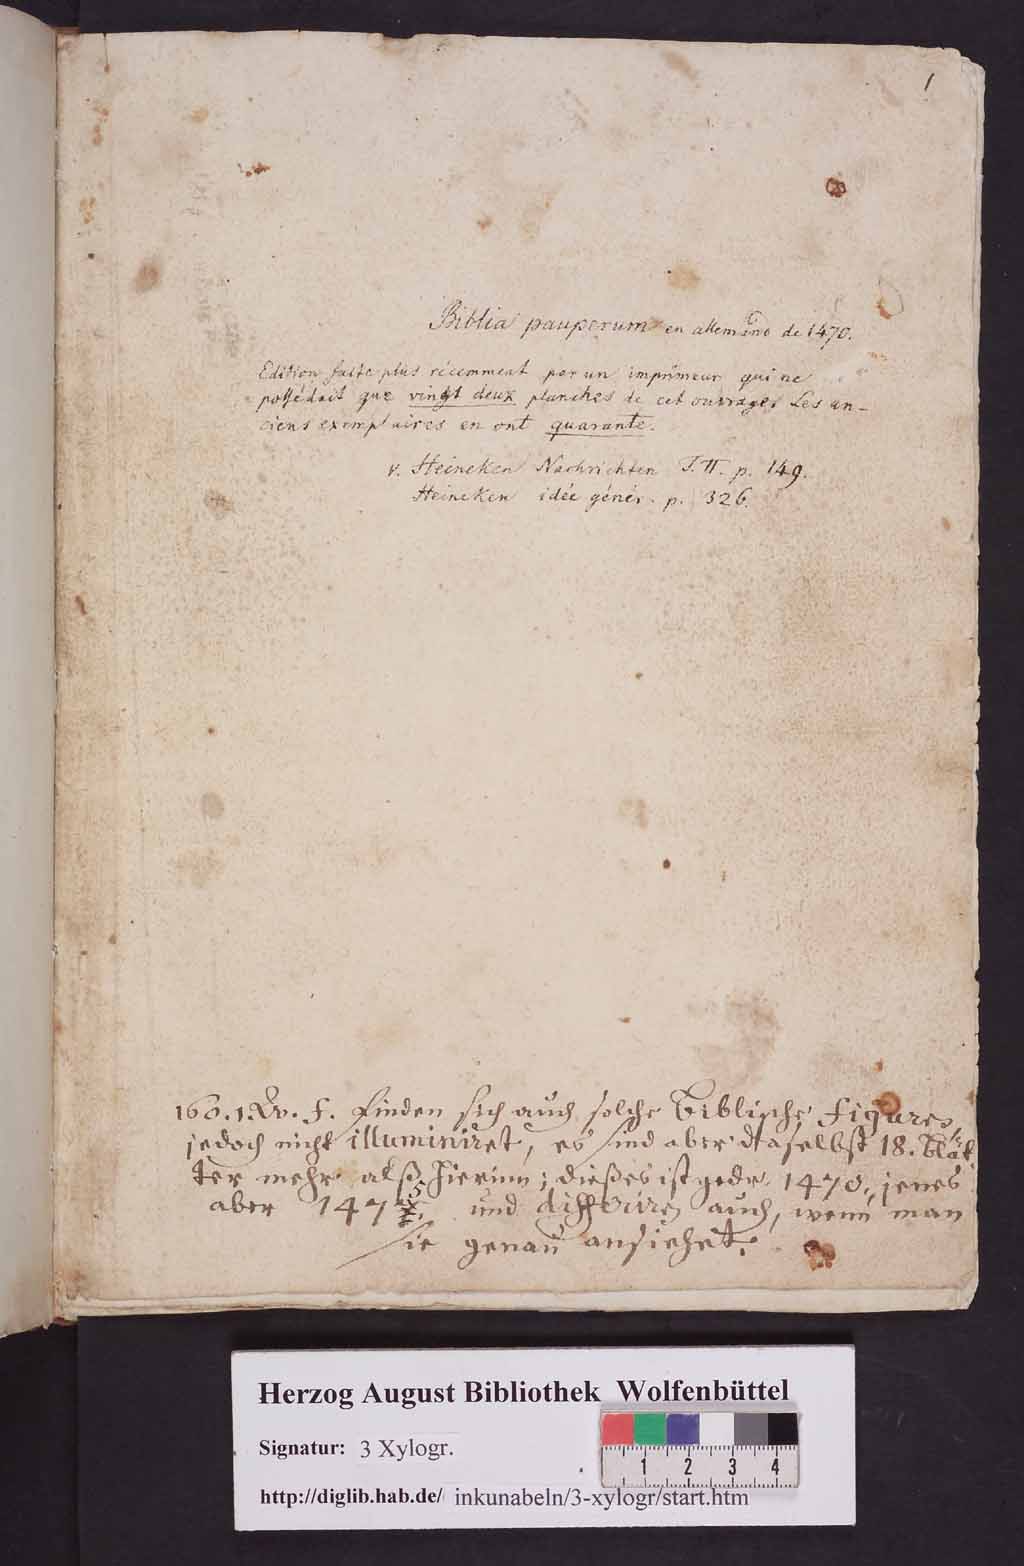 1
Biblia pauperum en allemand de 1470.
Edition faite plus récemment par un imprimeur qui ne
possédait que vingt deux planches de cet ouvrage. Les an-
ciens exemplaires en ont quarante.
v. Heineken Nachrichten T. II. p. 149.
Heineken idée génér. p. 326.
160. 1. f. finden sich auch solche Biblische figuren,
jedoch nicht illuminiret, es sind aber daselbst 18. blät
ter mehr alß hierinn; dießes ist gedr. 1470., jenes
aber 1475. und differiren auch, wenn man
sie genau ansiehet.
Herzog August Bibliothek Wolfenbüttel
Signatur: 3 Xylogr.
1 2 3 4
http://diglib.hab.de/ inkunabeln/3-xylogr/start.htm